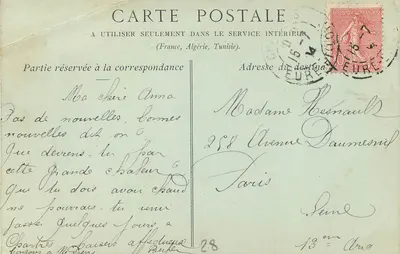 CARTE POSTALE
A UTILISER SEULEMENT DANS LE SERVICE INTÉRIEUR
(France, Algérie, Tunisie).
Partie réservée à la correspondance
Ma chère Anna
Pas de nouvelles, bonnes
nouvelles dit on
Que deviens tu par
cette grande chaleur
Que tu dois avoir chaud
ne pourrais tu venir
passer quelques jours à
Chartres Baisers affectueux
28
Adresse du destinataire
Madame Hesnault
258 Avenue Daumesnil
Paris
Seine
12ème Arro
EURE
16 -7
14
EURE